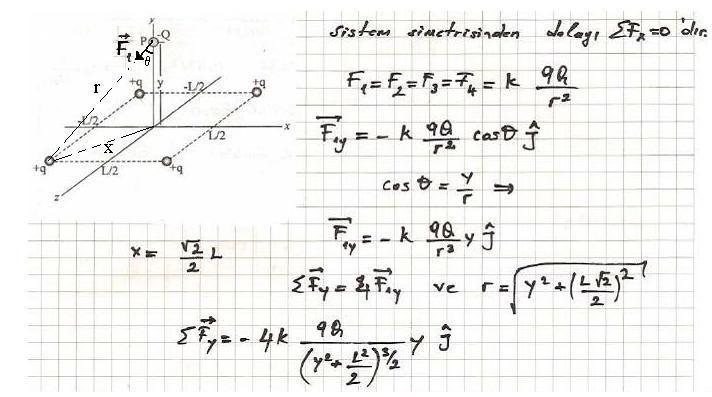 y
P -Q
F₁ θ
r y
+q -L/2 +q
-L/2 x
x L/2
+q L/2 +q
z
Sistem simetrisinden dolayı ΣFₓ=0 'dır.
F₁=F₂=F₃=F₄= k qQ/r²
F₁y = - k qQ/r² cosθ ĵ
cosθ = y/r ⇒
F₁y = - k qQ/r³ y ĵ
x = √2/2 L
ΣFy = 4F₁y ve r = √(y²+(L√2/2)²)
ΣFy = - 4k qQ/(y²+L²/2)^3/2 y ĵ